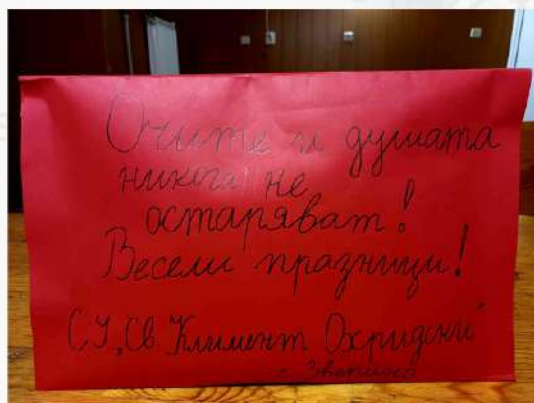 Очите и душата
никога не
остаряват!
Весели празници!
СУ „Св Климент Охридски"